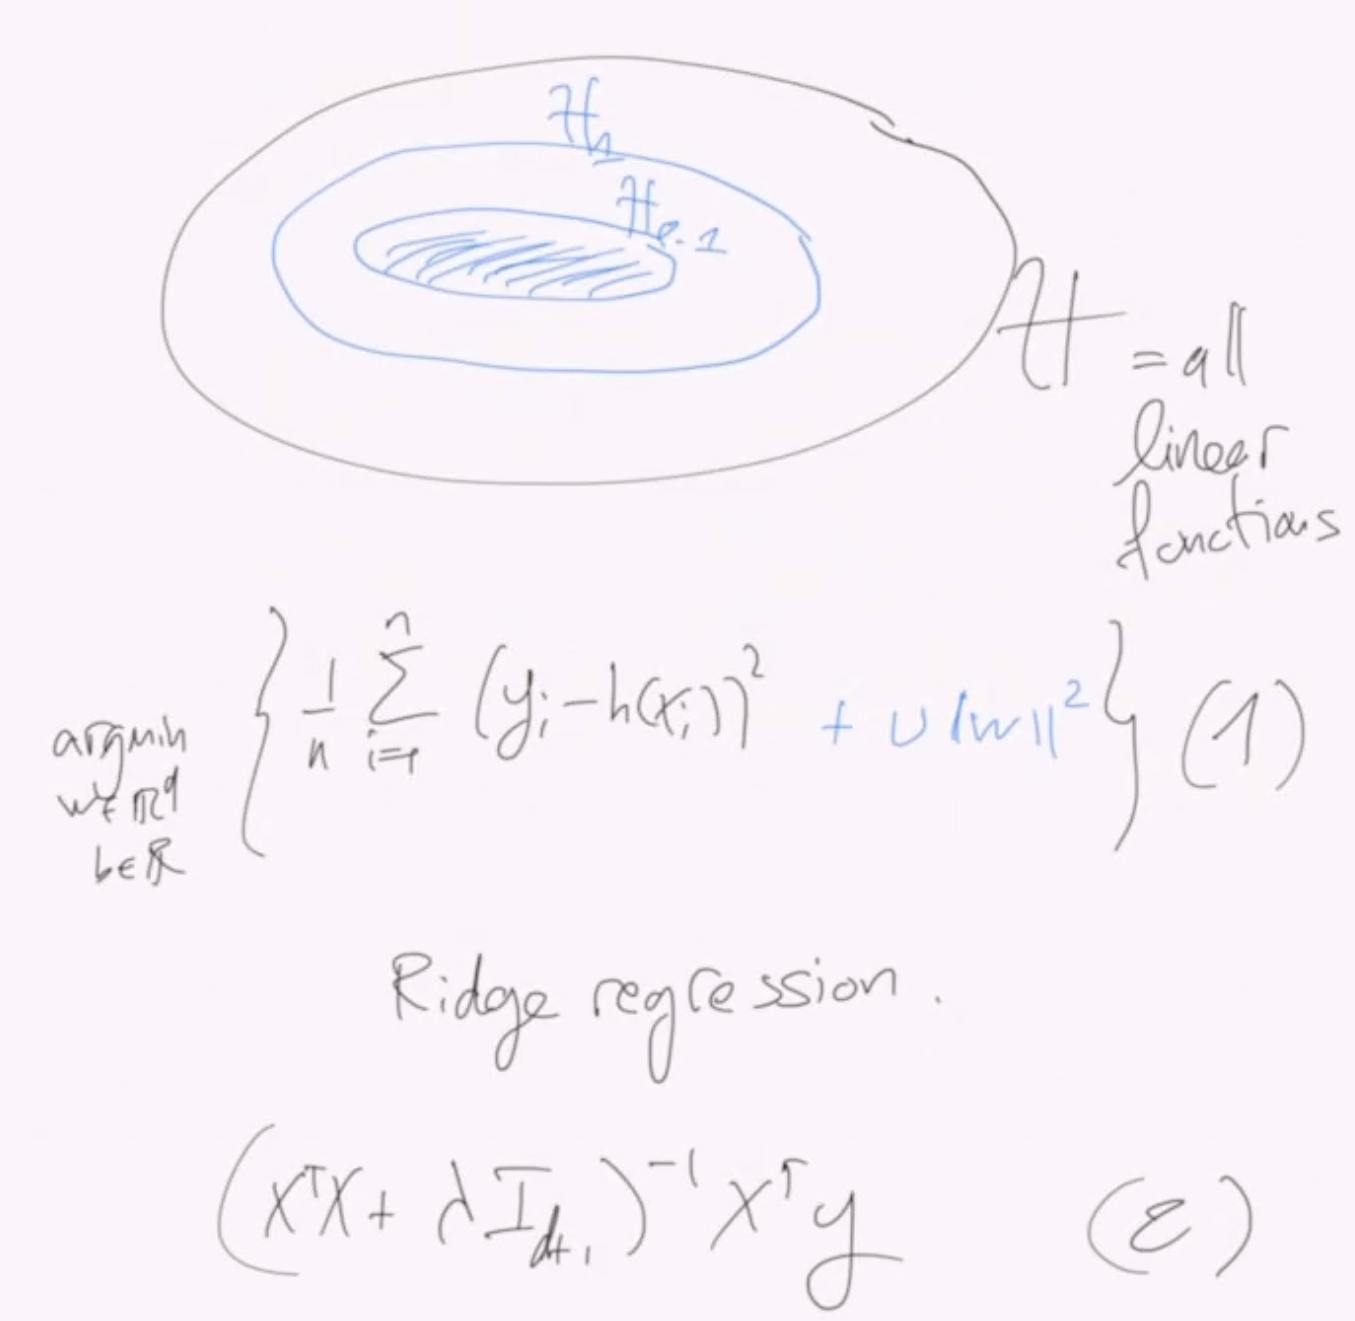 ℋ₁
ℋ₀.₁
ℋ = all
linear
functions
argmin
w∈ℝᵈ
b∈ℝ
{ 1/n ∑ᵢ₌₁ⁿ (yᵢ − h(xᵢ))² + υ‖w‖² } (1)
Ridge regression.
(XᵀX + λ I_{d+1})⁻¹ Xᵀ y (2)